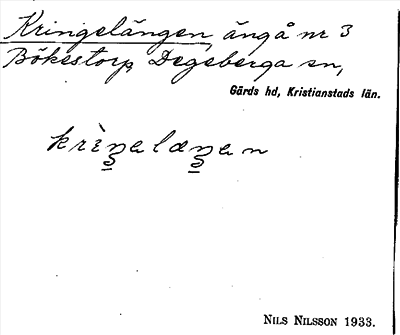 Kringelängen, äng å nr 3
Bökestorp, Degeberga sn,
Gärds hd, Kristianstads län.
krìŋ̠əlæŋ̠ən
NILS NILSSON 1933.